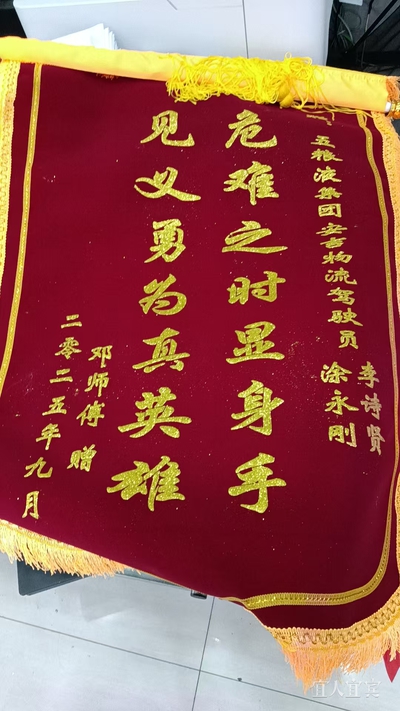 五粮液集团安吉物流驾驶员
李诗贤
涂永刚
危难之时显身手
见义勇为真英雄
邓师傅 赠
二零二五年九月
宜人宜宾